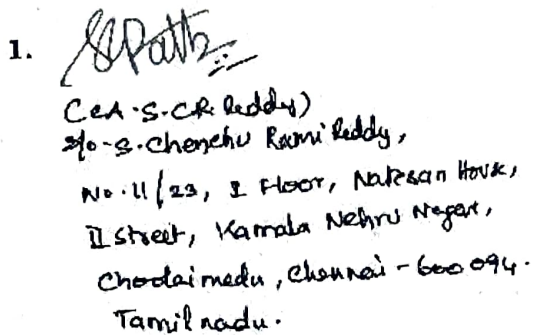 1.
(CA.S.C.R. Reddy)
S/o-S.Chenchu Rami Reddy,
No.11/23, I Floor, Natesan House,
II Street, Kamala Nehru Nagar,
Choolaimedu, Chennai - 600 094.
Tamil nadu.